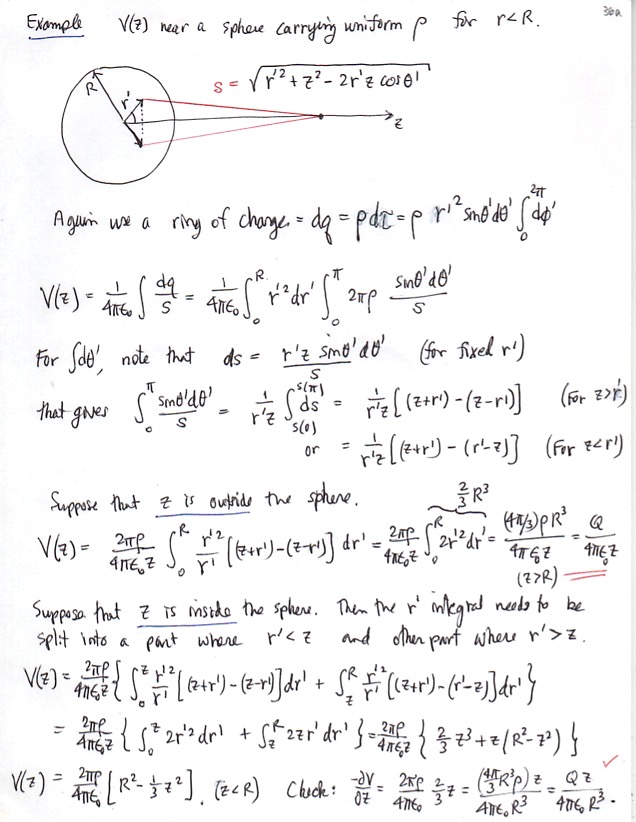 36a
Example V(z) near a sphere carrying uniform ρ for r<R.
s = √(r'² + z² − 2r'z cosθ')
R r'
z
Again use a ring of charge = dq = ρdτ = ρ r'² sinθ'dθ' ∫₀^{2π} dφ'
V(z) = 1/(4πε₀) ∫ dq/s = 1/(4πε₀) ∫₀^R r'² dr' ∫₀^π 2πρ sinθ'dθ'/s
For ∫dθ', note that ds = r'z sinθ'dθ'/s (for fixed r')
that gives ∫₀^π sinθ'dθ'/s = 1/(r'z) ∫_{s(0)}^{s(π)} ds = 1/(r'z) [(z+r') − (z−r')] (For z>r')
or = 1/(r'z) [(z+r') − (r'−z)] (For z<r')
Suppose that z is outside the sphere. 2/3 R³
V(z) = 2πρ/(4πε₀z) ∫₀^R r'²/r' [(z+r')−(z−r')] dr' = 2πρ/(4πε₀z) ∫₀^R 2r'² dr' = (4π/3)ρR³/(4πε₀z) = Q/(4πε₀z)
(z>R)
Suppose that z is inside the sphere. Then the r' integral needs to be
split into a part where r'<z and other part where r'>z.
V(z) = 2πρ/(4πε₀z) { ∫₀^z r'²/r' [(z+r')−(z−r')]dr' + ∫_z^R r'²/r' [(z+r')−(r'−z)]dr' }
= 2πρ/(4πε₀z) { ∫₀^z 2r'² dr' + ∫_z^R 2zr' dr' } = 2πρ/(4πε₀z) { 2/3 z³ + z(R²−z²) }
V(z) = 2πρ/(4πε₀) [R² − 1/3 z²]. (z<R) Check: −∂V/∂z = 2πρ/(4πε₀) 2/3 z = (4π/3 R³ρ) z/(4πε₀R³) = Qz/(4πε₀R³). ✓